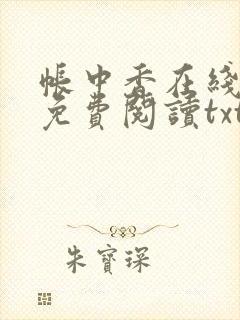 帳中香在綫
免費閱讀txt
朱寶琛